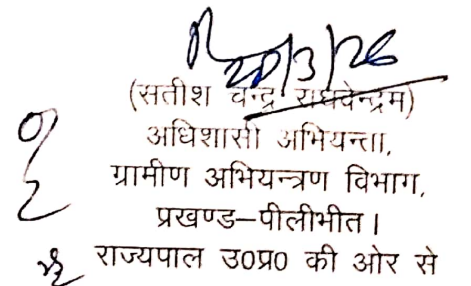 20/3/26
(सतीश चन्द्र राघवेन्द्रम)
अधिशासी अभियन्ता,
ग्रामीण अभियन्त्रण विभाग,
प्रखण्ड–पीलीभीत।
राज्यपाल उ0प्र0 की ओर से